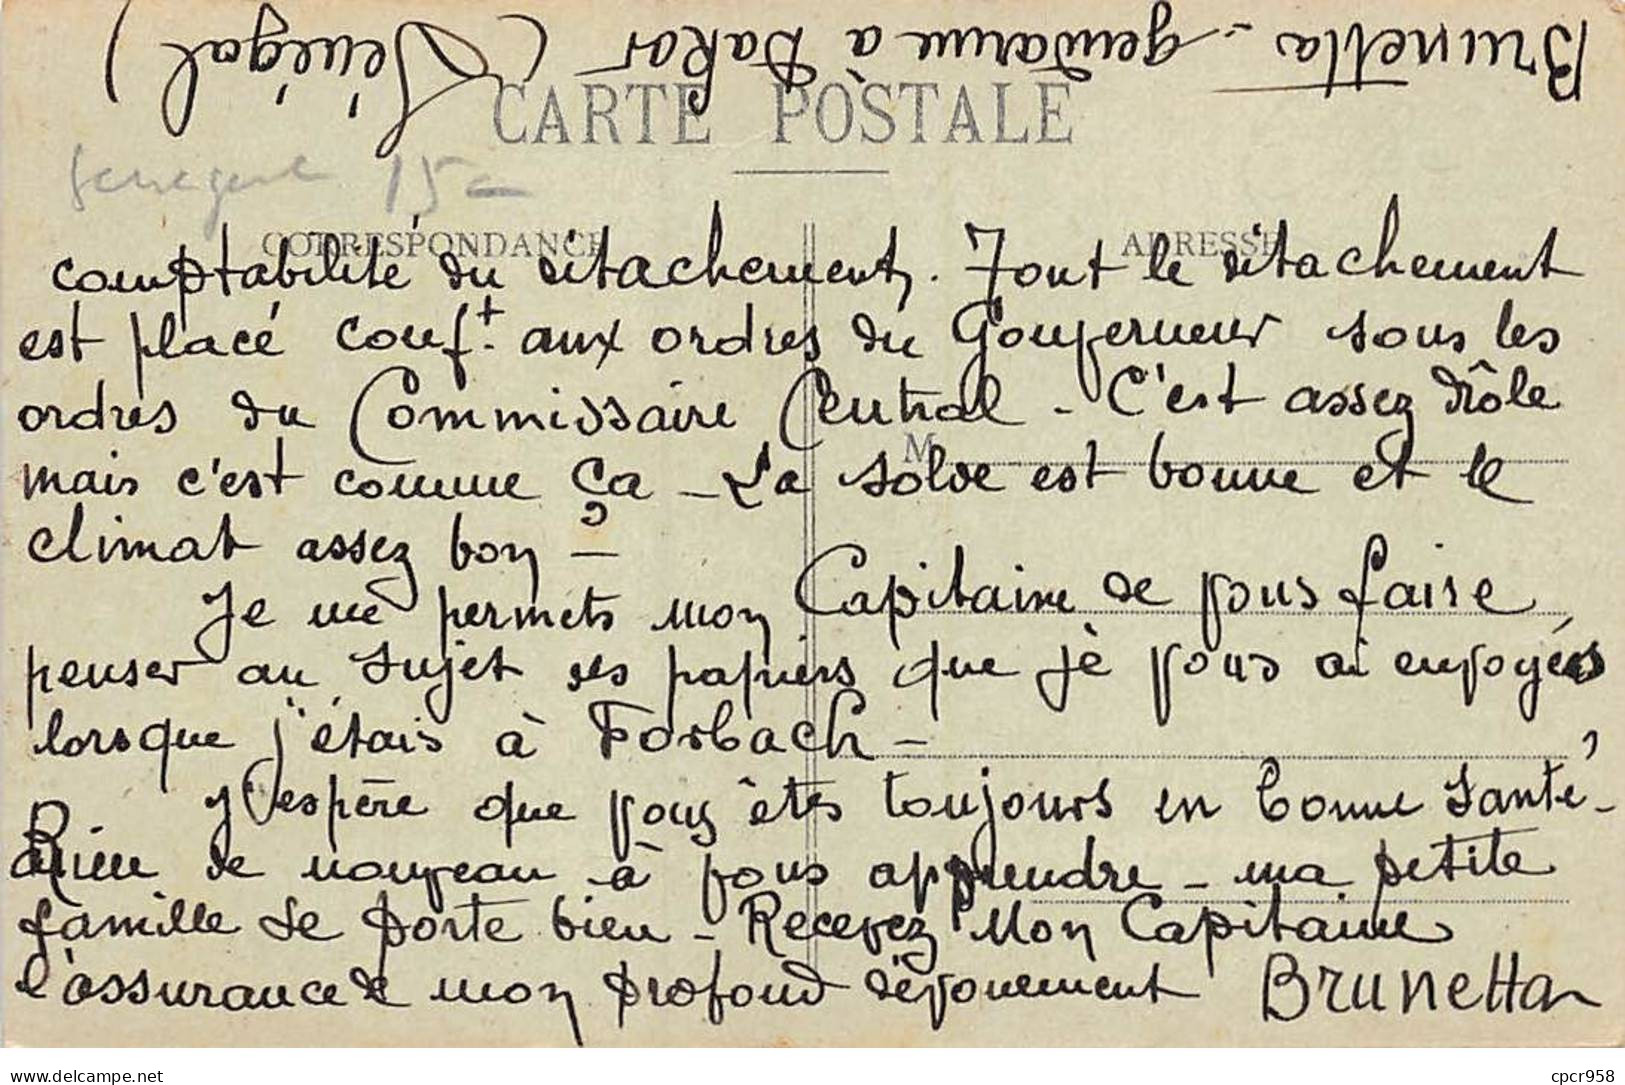 Brunetta - gendarme à Dakar (Sénégal)
CARTE POSTALE
15
CORRESPONDANCE
ADRESSE
comptabilité du détachement. Tout le détachement
est placé conf.t aux ordres du Gouverneur sous les
ordres du Commissaire Central - C'est assez drôle
M
mais c'est comme ça - La solde est bonne et le
climat assez bon -
Je me permets mon Capitaine de vous faire
penser au sujet des papiers que je vous ai envoyés
lorsque j'étais à Forbach -
J'espère que vous êtes toujours en bonne santé -
Rien de nouveau à vous apprendre - ma petite
famille se porte bien - Recevez Mon Capitaine
l'assurance de mon profond dévouement Brunetta
cpcr958